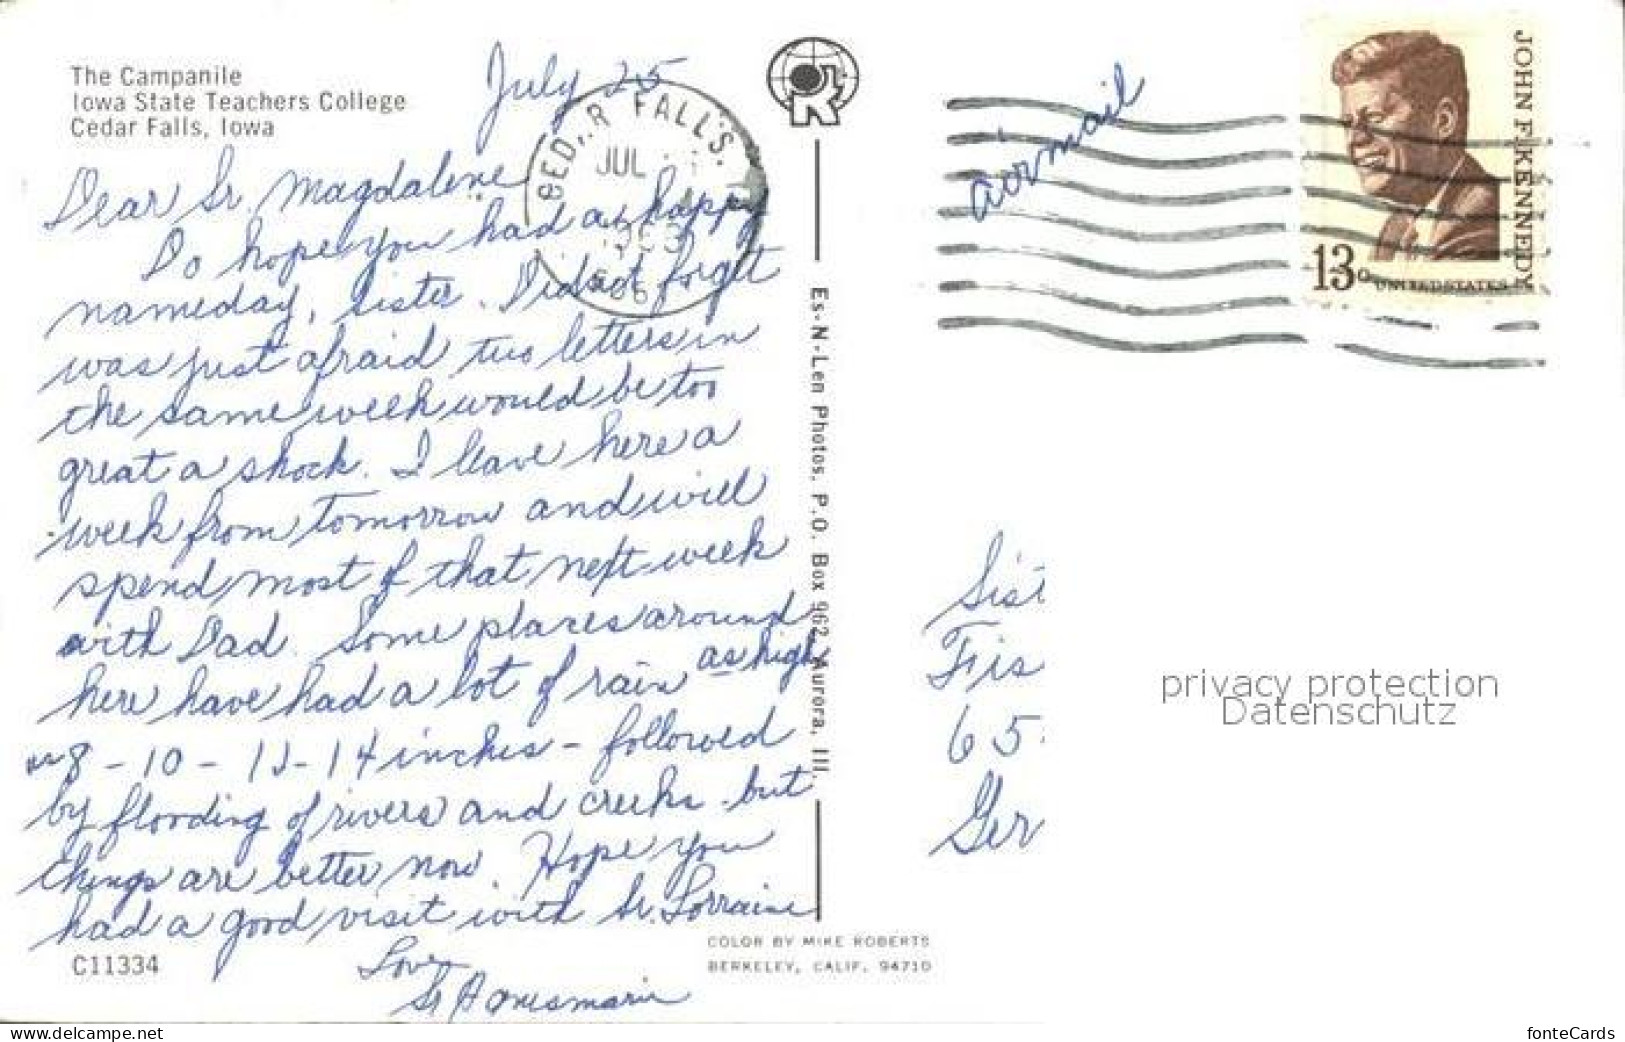 The Campanile
Iowa State Teachers College
Cedar Falls, Iowa
July 25
Dear Sr. Magdalene
Do hope you had a happy
nameday, Sister. Did not forget
was just afraid two letters in
the same week would be too
great a shock. I leave here a
week from tomorrow and will
spend most of that next week
with Dad. Some places around
here have had a lot of rain as high
as 8 - 10 - 12 - 14 inches - followed
by flooding of rivers and creeks - but
things are better now. Hope you
had a good visit with Sr. Lorraine
Love,
Sr Agnesmarie
C11334
Es-N-Len Photos, P.O. Box 962, Aurora, Ill.
COLOR BY MIKE ROBERTS
BERKELEY, CALIF. 94710
FALLS,
JUL
airmail
JOHN F. KENNEDY
13c UNITED STATES
Sist
Fis
65
Ger
privacy protection
Datenschutz
www.delcampe.net
fonteCards